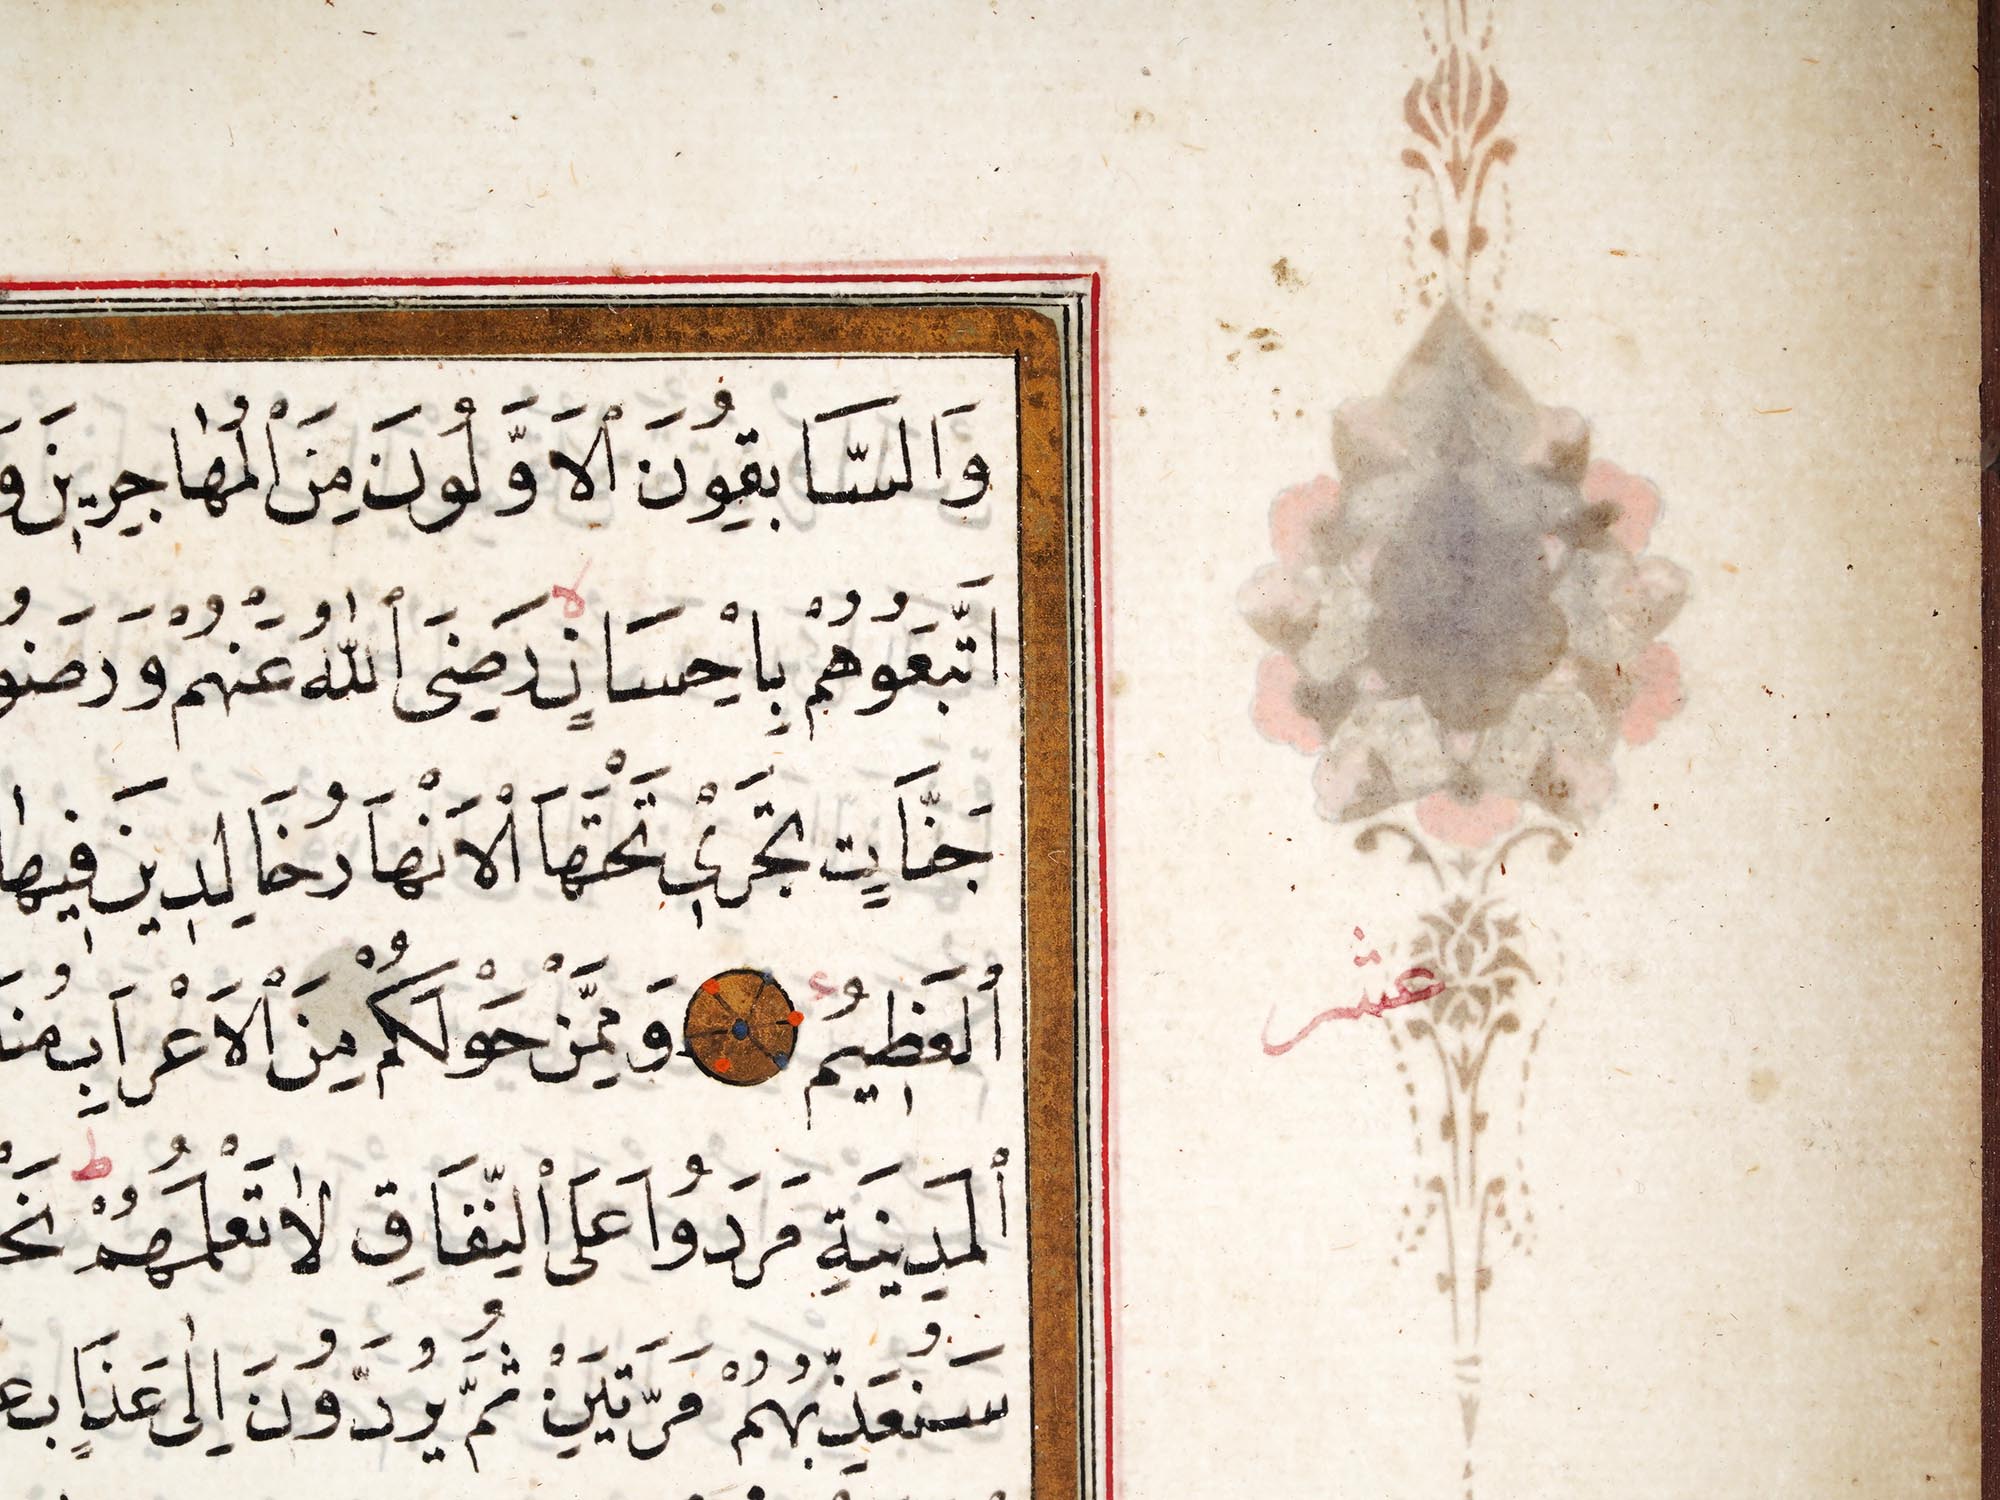 وَالسَّابِقُونَ ٱلْاَوَّلُونَ مِنَ ٱلْمُهَاجِرِينَ وَ
اتَّبَعُوهُمْ بِاِحْسَانٍ لا رَضِىَ ٱللّٰهُ عَنْهُمْ وَرَضُو
جَنَّاتٍ تَجْرِى تَحْتَهَا ٱلْاَنْهَارُ خَالِدِينَ فِيهَا
ٱلْعَظِيمُ وَمِمَّنْ حَوْلَكُمْ مِنَ ٱلْاَعْرَابِ مُنَا
عشر
ٱلْمَدِينَةِ مَرَدُوا عَلَى ٱلنِّفَاقِ لَا تَعْلَمُهُمْ ط نَحْ
سَنُعَذِّبُهُمْ مَرَّتَيْنِ ثُمَّ يُرَدُّونَ اِلٰى عَذَابٍ عَ